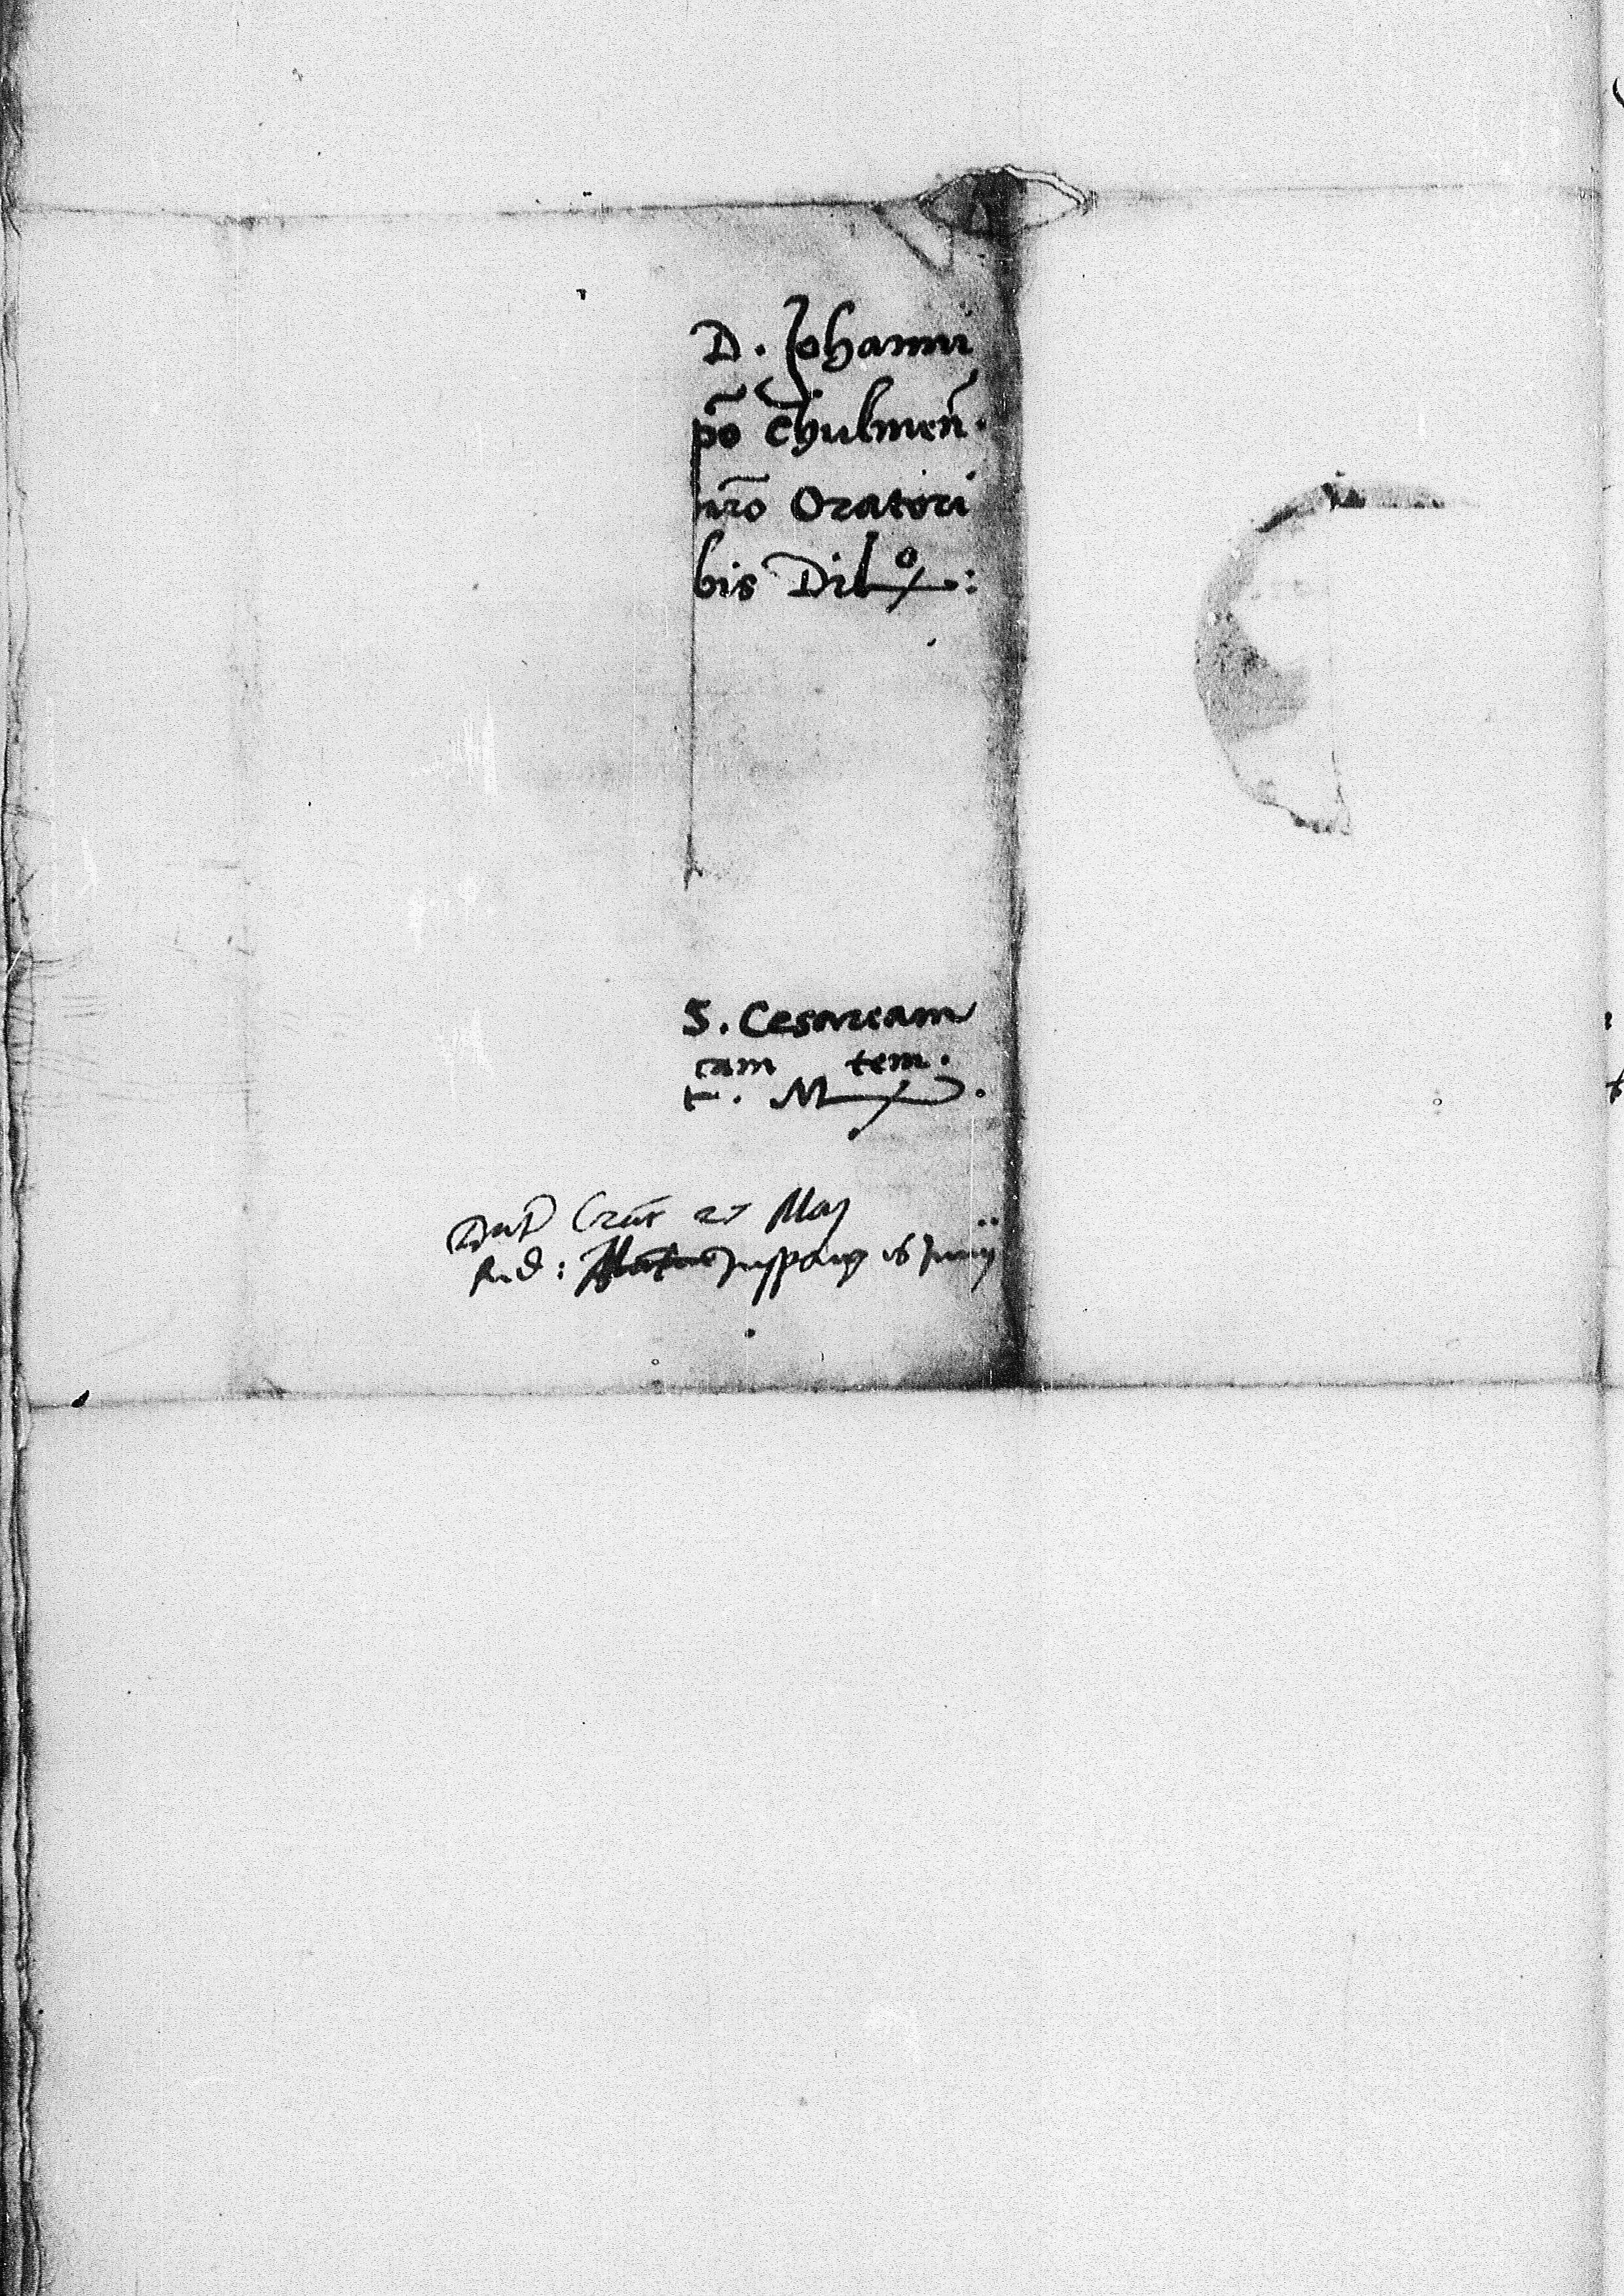 D. Johanni
po Chulmen̄.
nr̄o Oratori
bis Dil̶o:
S. Cesaream
cam tem.
t. M.
Dat Crac 27 Maj
Red: Inspong 16 Junij